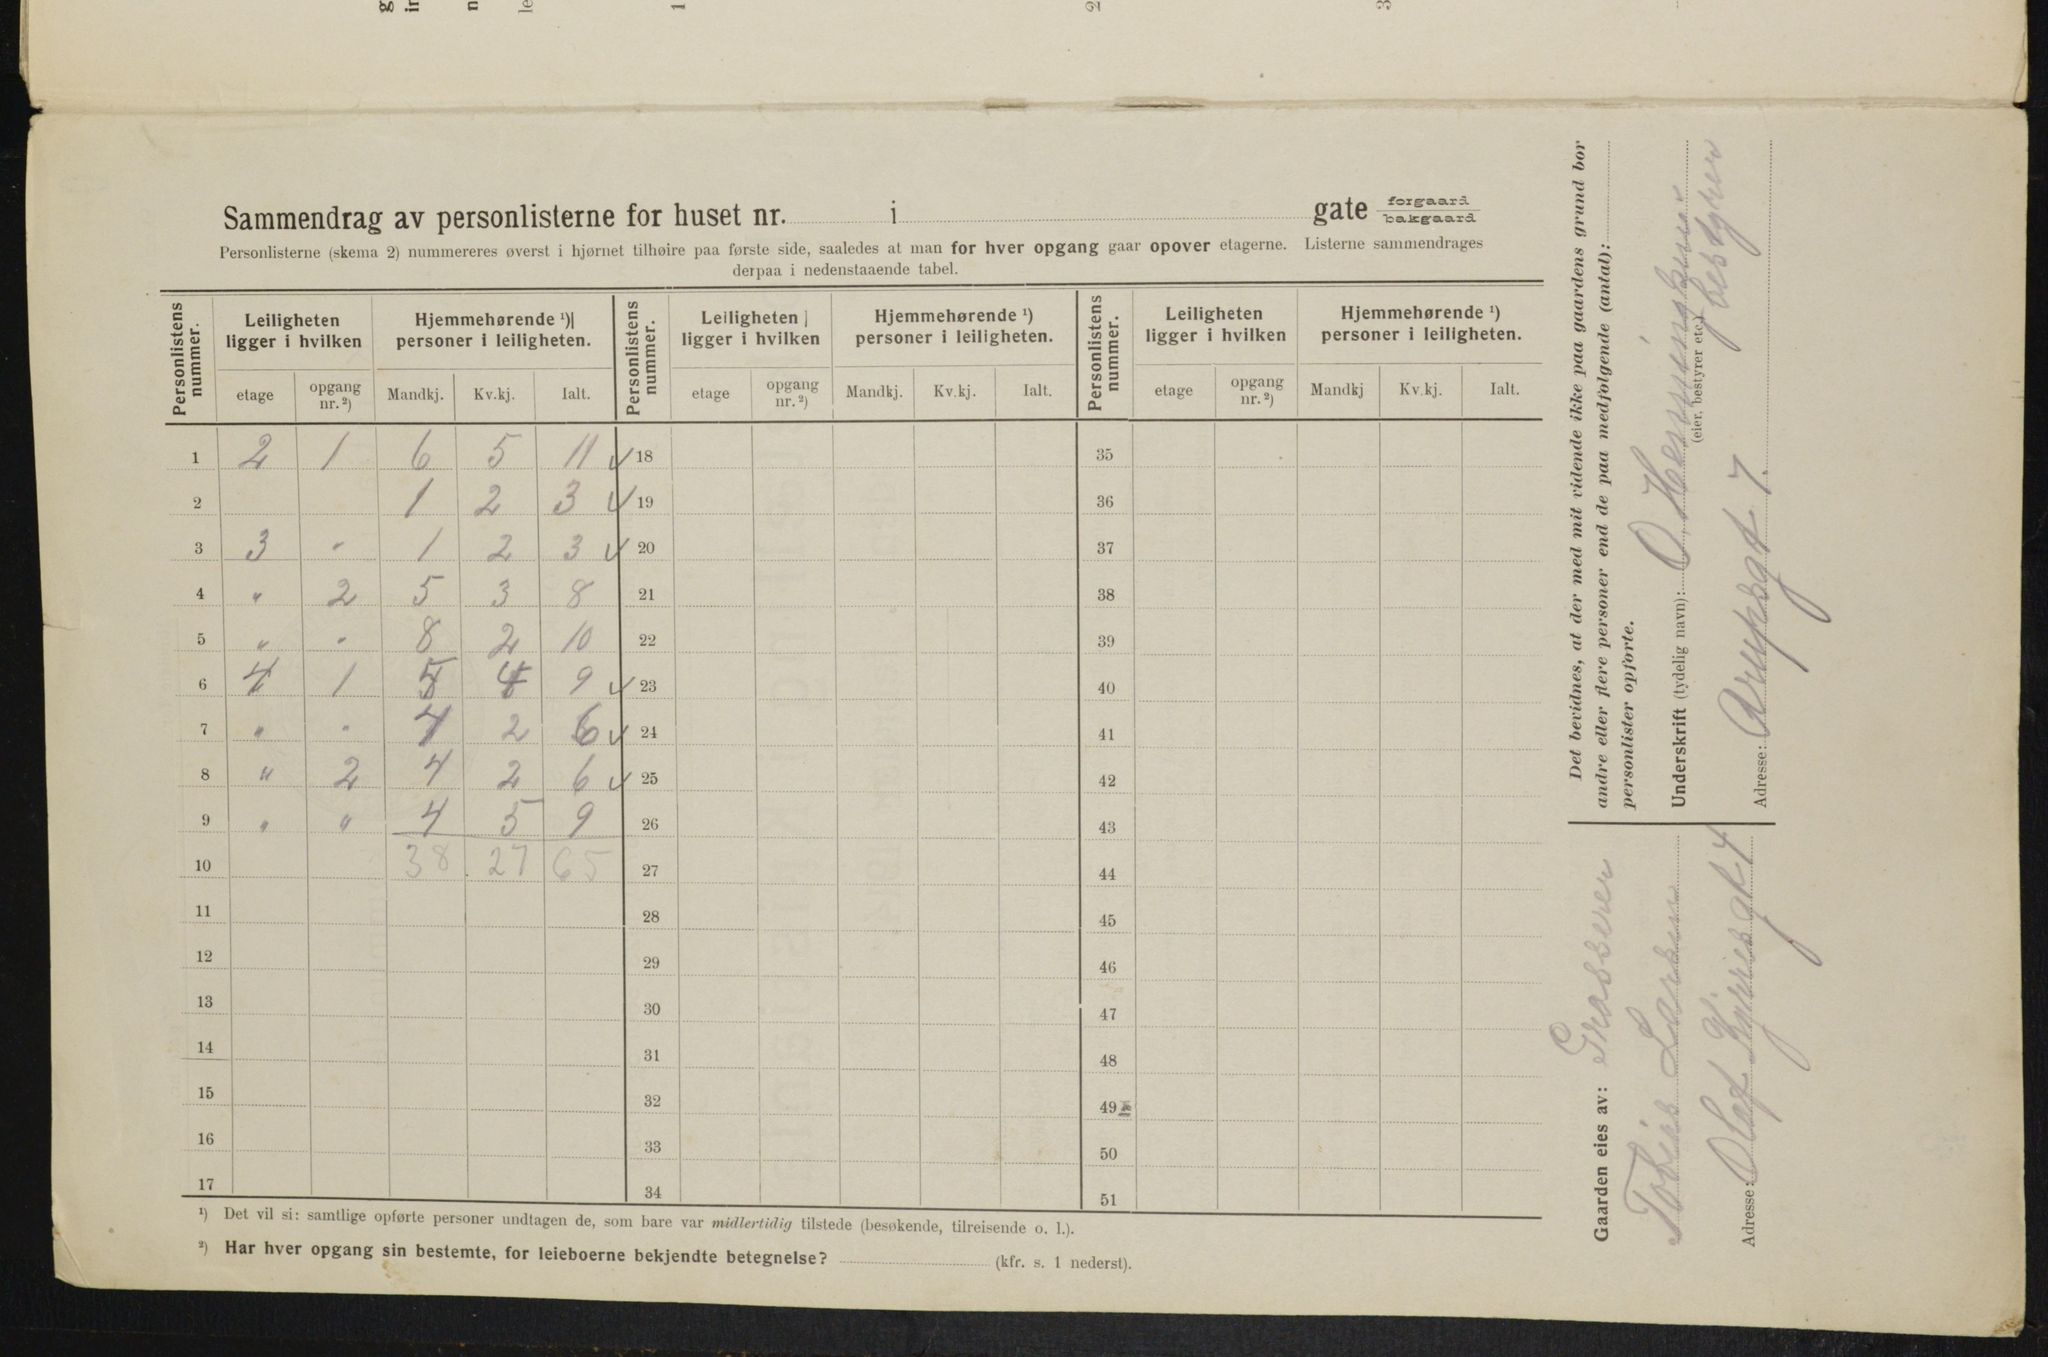 Sammendrag av personlisterne for huset nr. i gate forgaard bakgaard
Personlisterne (skema 2) nummereres øverst i hjørnet tilhøire paa første side, saaledes at man for hver opgang gaar opover etagerne. Listerne sammendrages
derpaa i nedenstaaende tabel.
Personlistens nummer. Leiligheten ligger i hvilken Hjemmehørende ¹) personer i leiligheten. Personlistens nummer. Leiligheten ligger i hvilken Hjemmehørende ¹) personer i leiligheten. Personlistens nummer. Leiligheten ligger i hvilken Hjemmehørende ¹) personer i leiligheten.
etage opgang nr. ²) Mandkj. Kv.kj. Ialt. etage opgang nr. ²) Mandkj. Kv.kj. Ialt. etage opgang nr. ²) Mandkj Kv.kj. Ialt.
1 2 1 6 5 11 ✓ 18 35
2 1 2 3 ✓ 19 36
3 3 " 1 2 3 ✓ 20 37
4 " 2 5 3 8 21 38
5 " " 8 2 10 22 39
6 4 1 5 4 9 ✓ 23 40
7 " " 4 2 6 ✓ 24 41
8 " 2 4 2 6 ✓ 25 42
9 " " 4 5 9 26 43
10 38 27 65 27 44
11 28 45
12 29 46
13 30 47
14 31 48
15 32 49
16 33 50
17 34 51
¹) Det vil si: samtlige opførte personer undtagen de, som bare var midlertidig tilstede (besøkende, tilreisende o. l.).
²) Har hver opgang sin bestemte, for leieboerne bekjendte betegnelse? (kfr. s. 1 nederst).
Det bevidnes, at der med mit vidende ikke paa gaardens grund bor
andre eller flere personer end de paa medfølgende (antal):
personlister opførte.
Underskrift (tydelig navn): O Henningsen
(eier, bestyrer etc.) bestyrer
Adresse: Arupsgt. 7.
Gaarden eies av: Grosserer
Tobias Larsen
Adresse: Olaf Kyrresgt 4